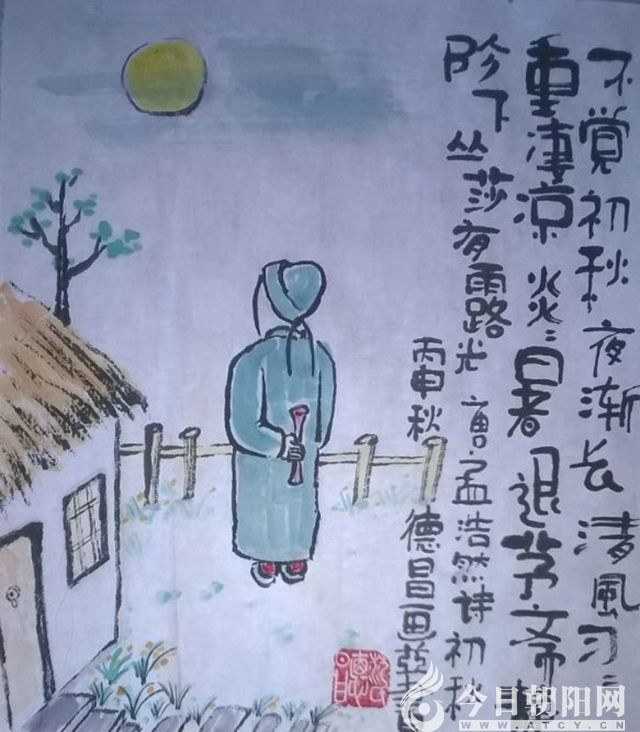 不覺初秋夜渐长清風习〻
重凄凉炎〻暑退茅斋
阶下丛莎有露光 唐.孟浩然詩初秋
丙申秋 德昌画
今日朝阳网
WWW.ATCY.CN